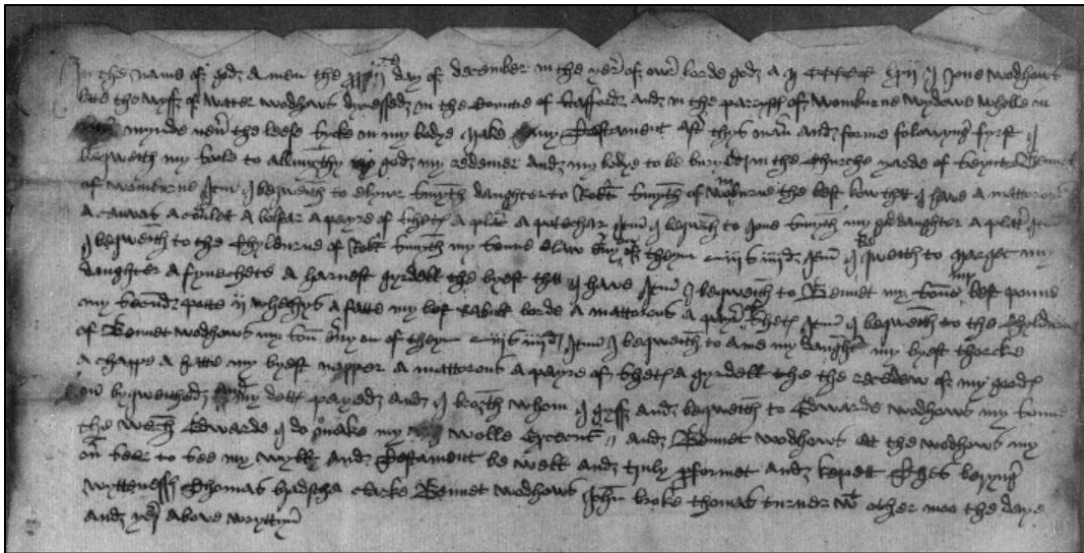 In the name of god amen the day of december in the yer of owr lorde god a Jone wodhows
late the wyff of water wodhows dyssessed in the Countie of Stafford and in the parryssh of womburne wydowe wholle in
mynde never the lesse syke in my bodye make my Testament aft thys man and forme folowyng fyrst I
beqweith my sole to allmyghty god my redemer and my bodye to be buryed in the Churche yarde of seynt Bennet
of womburne Itm I beqweith to elynor Smyth daughter to Robt Smyth of womburne the best that I have a mattorous
a canvas a a bolster a payre of shets a plat a Itm I beqweith to Jone Smyth my goddaughter a plat Itm
I beqweith to the Chyldurne of Robt Smyth my sonne elaw of theym iiis iiiid Itm I beqweith to my
daughter a a harnest gyrdell the byest that I have Itm I beqweith to Bennet my sone my best ponne
my second potte ii whechys a fatte my best borde a mattorous a payr shets Itm I beqweith to the Chyldurne
of Bennet wodhows my son of theym iiis iiiid Itm I beqweith to my daught my byest
a chappe a hatte my byest napper a mattorous a payre of shets a gyrdell the the of my goods
on byqwethed and my detts payed and I broght whom I gyff and beqweith to Edwarde wodhows my sonne
the Edwarde I do make my wolle and Bennet wodhows at the wodhows my
ov seer to see my wyll and Testament be well and truly pformet and kepet Thes beryng
wyttenessh Thomas clarke Bennet wodhows John broke thomas turner wt other moo the daye
and yer above wryttyn